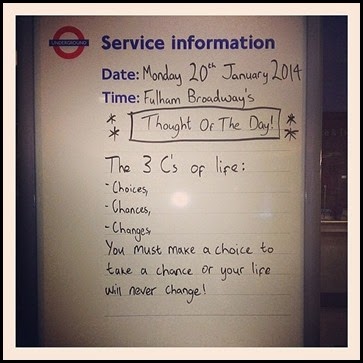 UNDERGROUND
Service information
Date: Monday 20th January 2014
Time: Fulham Broadway's
* Thought Of The Day! *
* *
The 3 C's of life:
- Choices,
- Chances,
- Changes,
You must make a choice to
take a chance or your life
will never change!